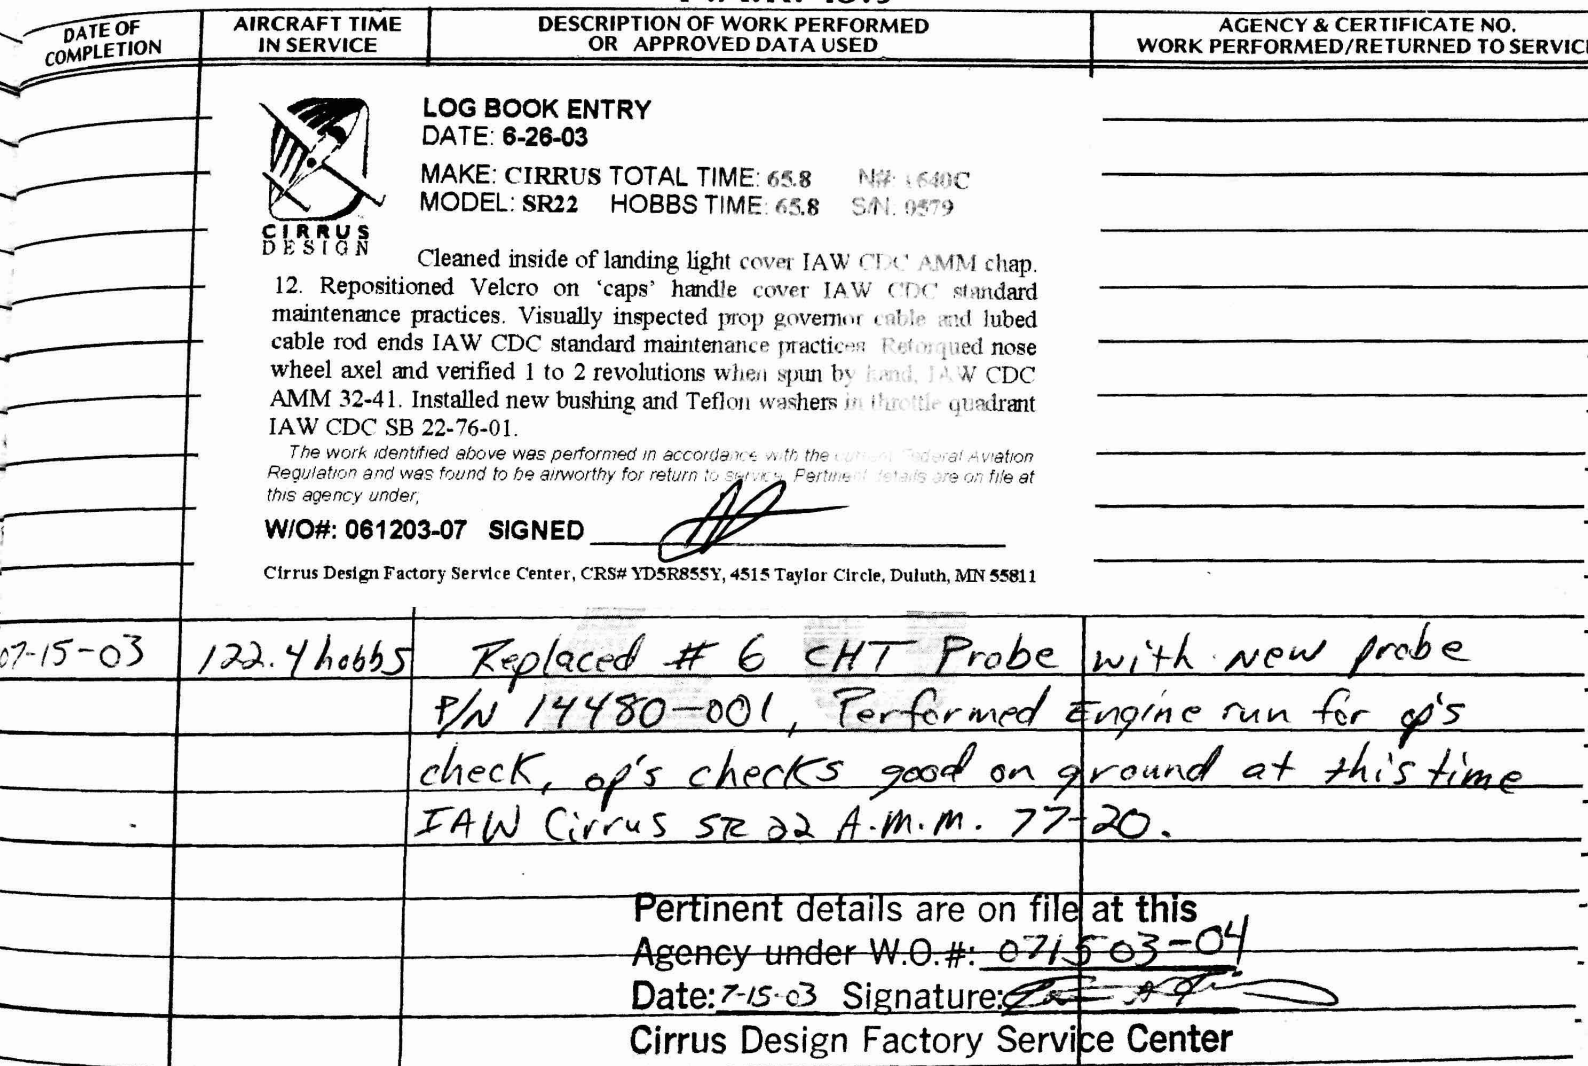 DATE OF COMPLETION
AIRCRAFT TIME IN SERVICE
DESCRIPTION OF WORK PERFORMED OR APPROVED DATA USED
AGENCY & CERTIFICATE NO.
WORK PERFORMED/RETURNED TO SERVICE
CIRRUS
DESIGN
LOG BOOK ENTRY
DATE: 6-26-03
MAKE: CIRRUS TOTAL TIME: 65.8 N#:
MODEL: SR22 HOBBS TIME: 65.8 S/N. 0579
Cleaned inside of landing light cover IAW CDC AMM chap.
12. Repositioned Velcro on ‘caps’ handle cover IAW CDC standard
maintenance practices. Visually inspected prop governor cable and lubed
cable rod ends IAW CDC standard maintenance practices. Retorqued nose
wheel axel and verified 1 to 2 revolutions when spun by hand, IAW CDC
AMM 32-41. Installed new bushing and Teflon washers in throttle quadrant
IAW CDC SB 22-76-01.
The work identified above was performed in accordance with the current Federal Aviation
Regulation and was found to be airworthy for return to service. Pertinent details are on file at
this agency under,
W/O#: 061203-07 SIGNED
Cirrus Design Factory Service Center, CRS# YD5R855Y, 4515 Taylor Circle, Duluth, MN 55811
07-15-03 122.4 hobbs Replaced # 6 CHT Probe with new probe
P/N 14480-001, Performed Engine run for op's
check, op's checks good on ground at this time
IAW Cirrus SR 22 A.M.M. 77-20.
Pertinent details are on file at this
Agency under W.O.#: 071503-04
Date: 7-15-03 Signature:
Cirrus Design Factory Service Center